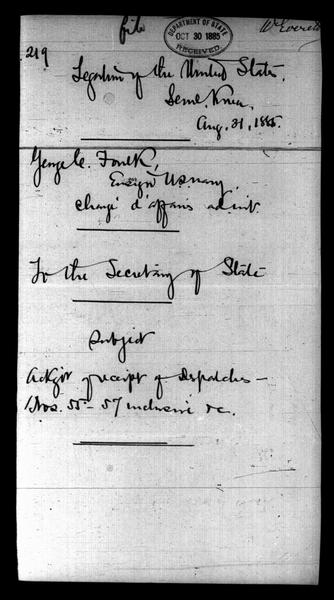 file
DEPARTMENT OF STATE
OCT 30 1885
RECEIVED
W Everett
219
Legation of the United States,
Seoul, Korea,
Aug. 31, 1885.
George C. Foulk,
Ensign U.S. Navy,
Chargé d'affaires ad int.
To the Secretary of State
Subject
receipt of dispatches –
Nos. 55 – 57 inclusive &c.